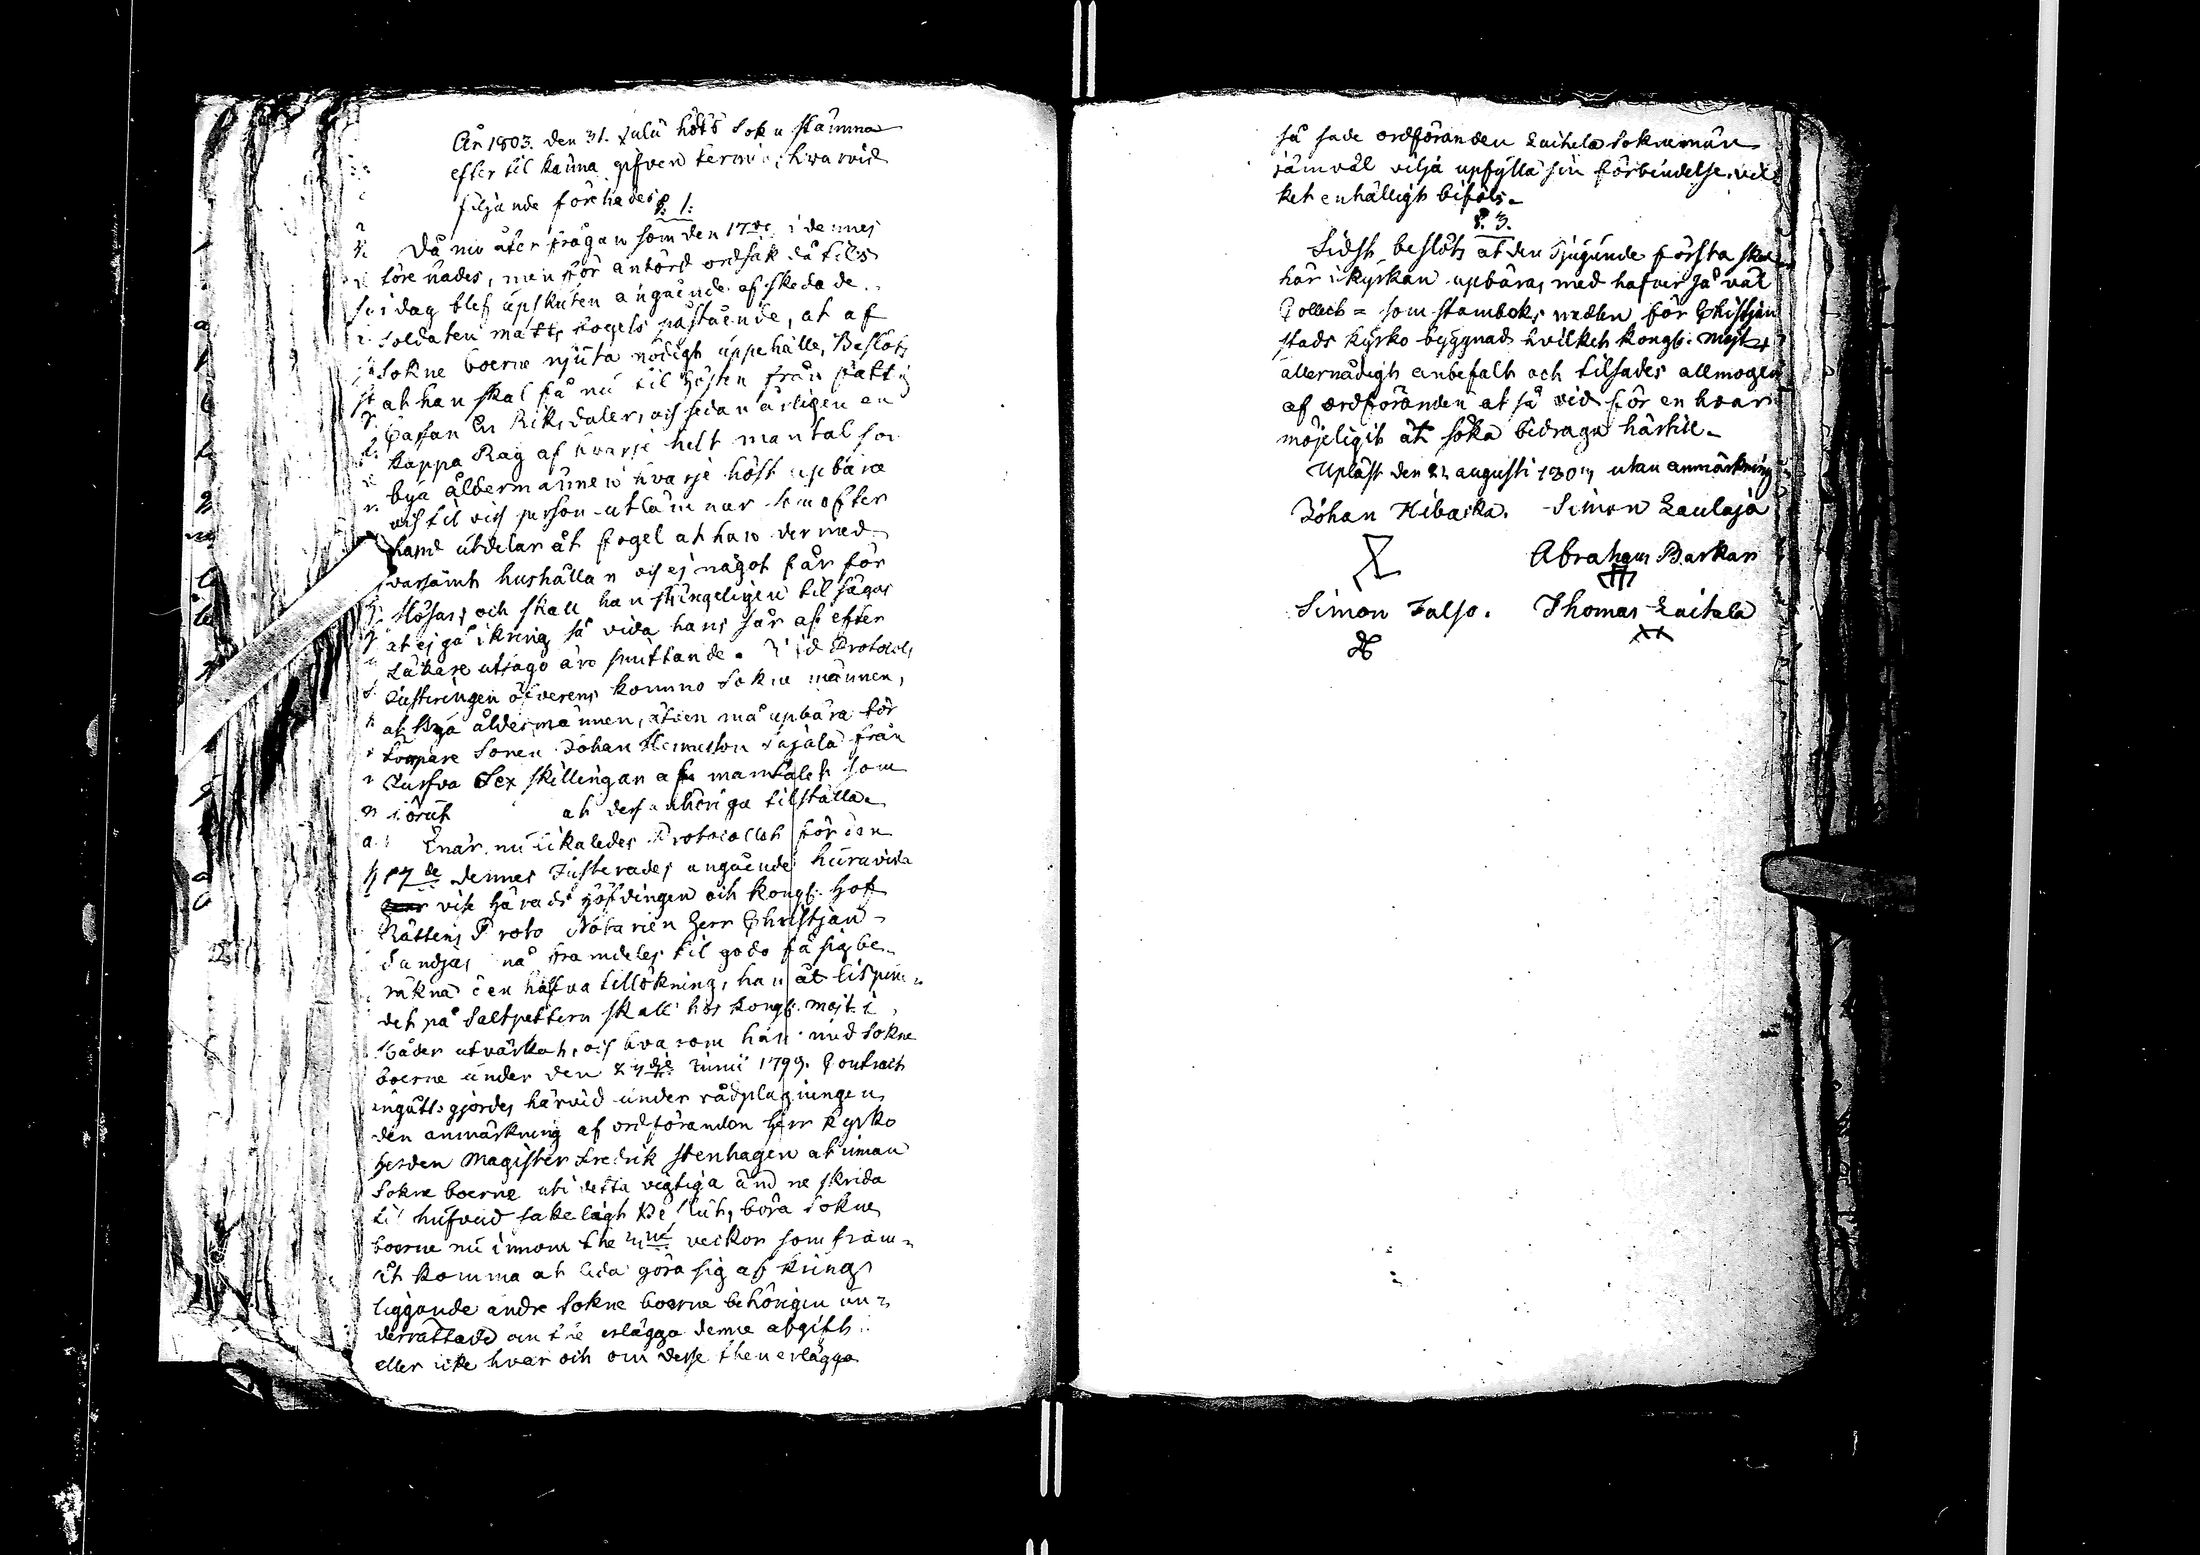 År 1803. den 31. Julii hölts Sokn stämma
efter til känna gifven termin; hvarvid
följande förehades
§. 1.
Då nu åter frågan som den 17de i dennes
före hades, men för anförd ordsak då tils
i dag blef upskuten angående afskedade
Soldaten Matts Fogels påstående, at af
Sokne boerne njuta nödigt uppehälle, Beslöts
at han skal få nu til hösten från fattig
Cassan En Riksdaler, och sedan årligen en
kappa Råg af hvarje helt mantal som
bya åldermännen hvarje höst upbära
och til viss person utlämnar som efter
hand utdelar åt Fogel at han der med
varsamt hushållan och ej något får för
slösas, och skall han stängeligen til sägas
at ej gå ikring så vida hans sår af efter
Läkare utsago äro smittande. Vid Protocols
Justeringen öfverens kommo Sokne männen,
at Bya åldermännen, även må upbära för
torpare Sonen Johan Hermansson Pajala från
Turfva Sex skillingar af mantalet som
förut at dess anhöriga tilställa.
Enär nu likaledes Protocollet för den
17de dennes Justerades angående huruvida
vice Härads Höfdingen och Kongl. Hof
Rättens Proto Notarien Herr Christjan
Sandjas må framdeles til godo få sig be-
räkna den halfva tillökning, han åt Lispun-
det på Saltpettern skall hos Kongl. Majt. i
Nåder utvärkat, och hvarom han med Sokne
boerne under den 27de Junii 1799. Contract
ingått: gjordes härvid under rådplägningen
den anmärkning af ordföranden Herr Kyrko
herden Magister Fredrik Stenhagen at innan
Sokne boerne uti detta vegtiga ämne skrida
til hufvud sakeligt Beslut, böra Sokne
boerne nu innom the veckor som fram-
åt komma at lida göra sig af kring
liggande andre Sokne boerne behörigen un-
derrättade om the erlägga denne afgift
eller icke hvar och om desse then erlägga
så sade ordföranden Laihela Soknemän
jämväl vilja upfylla sin förbindelse. vil
ket enhälligt biföls.
§. 3.
Sidst beslöts at den Tjugunde första
här i kyrkan upbäras med hafver så väl
Collect = som stamboks medlen för Christjan
stads kyrko byggnad hvilket Kongl. Majt
allernådigst anbefalt och tilsades allmogen
af ordföranden at så vid för en hvar
möjeligit är söka bidraga härtill.
Upläst den 21 augusti 1803, utan anmärkning
Johan Hibaska. Simon Laulaja
Abraham Barkar
Simon Talso. Thomas Laitala